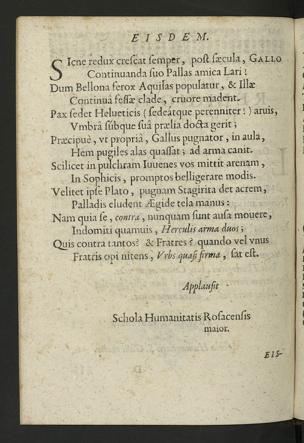 EISDEM.
SIcne redux crescat semper, post sæcula, GALLO
Continuanda suo Pallas amica Lari!
Dum Bellona ferox Aquilas populatur, & Illæ
Continuâ fessæ clade, cruore madent.
Pax sedet Helueticis (sedeátque perenniter!) aruis,
Vmbrâ súbque suâ prælia docta gerit;
Præcipuè, vt propriâ, Gallus pugnator, in aula,
Hem pugiles alas quassat; ad arma canit.
Scilicet in pulchram Iuuenes vos mittit arenam,
In Sophicis, promptos belligerare modis.
Velitet ipse Plato, pugnam Stagirita det acrem,
Palladis eludent Ægide tela manus:
Nam quia se, contra, nunquam sunt ausa mouere,
Indomiti quamuis, Herculis arma duos;
Quis contra tantos? & Fratres? quando vel vnus
Fratris opi nitens, Vrbs quasi firma, sat est.
Applausit
Schola Humanitatis Rosacensis
maior.
EIS-